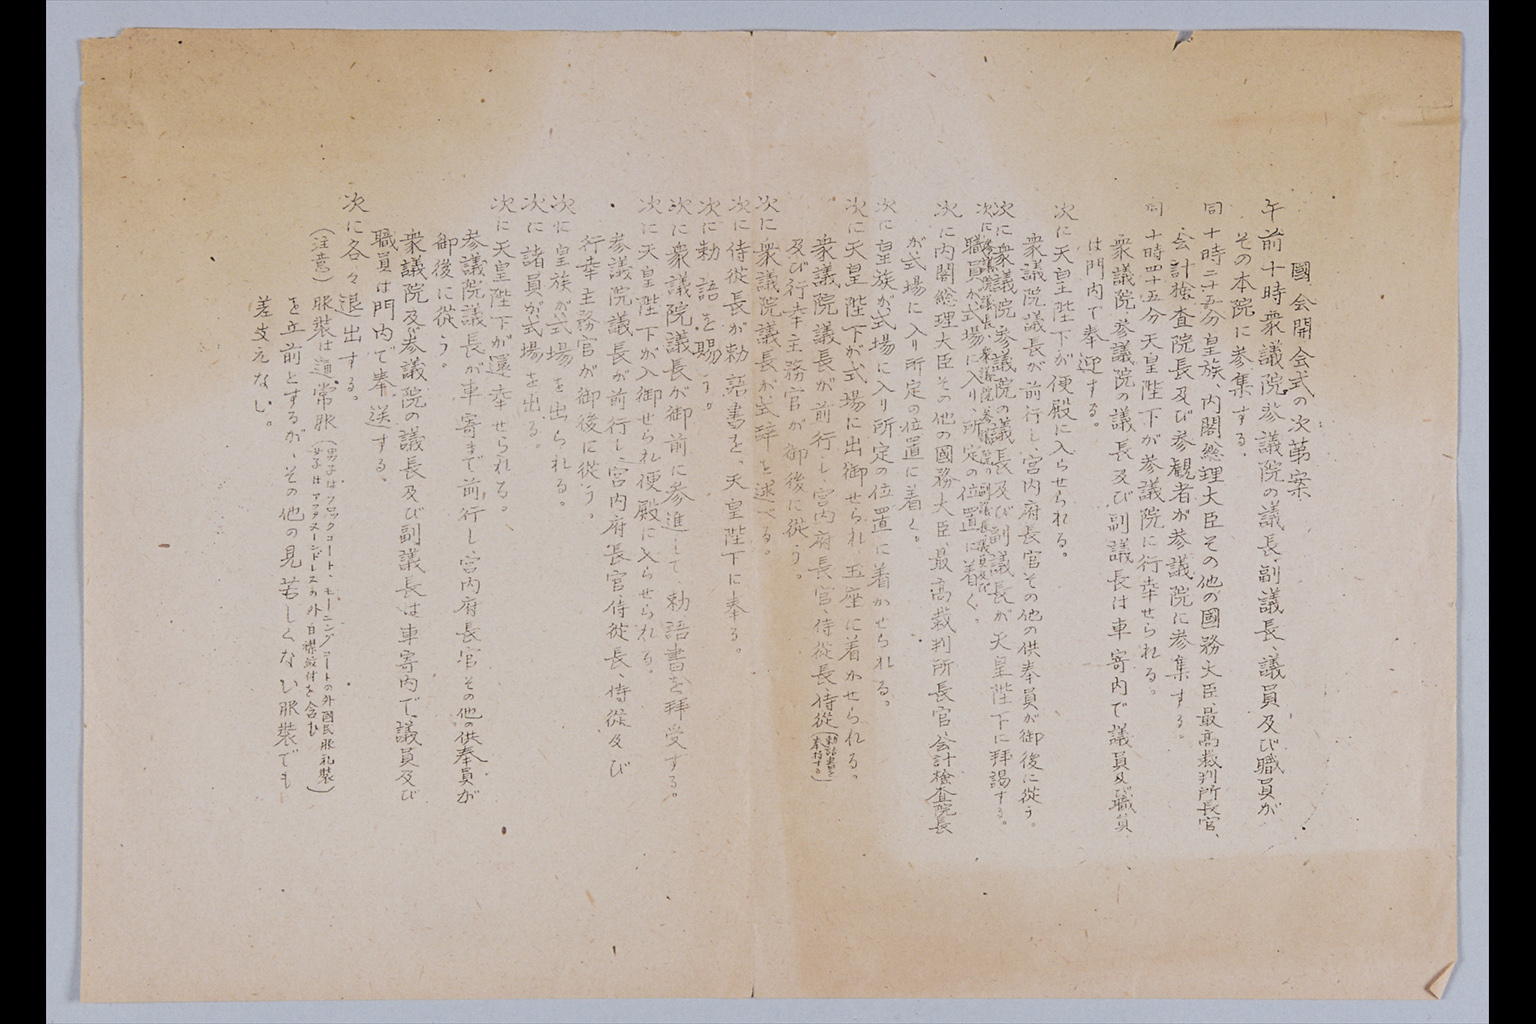 國会開会式の次第案
午前十時衆議院参議院の議長、副議長、議員及び職員が
その本院に参集する、
同十時二十五分皇族、内閣総理大臣その他の國務大臣、最高裁判所長官、
会計検査院長及び参観者が参議院に参集する。
同十時四十五分天皇陛下が参議院に行幸せられる。
衆議院、参議院の議長及び副議長は車寄内で議員及び職員
は門内で奉迎する。
次に天皇陛下が便殿に入らせられる。
衆議院議長が前行し、宮内府長官その他の供奉員が御後に従う。
次に衆議院、参議院の議長及び副議長が天皇陛下に拝謁する。
次に衆議院議長、参議院の副議長、議員及び
職員が式場に入り、所定の位置に着く、
次に内閣総理大臣その他の國務大臣、最高裁判所長官、会計検査院長
が式場に入り所定の位置に着く。
次に皇族が式場に入り所定の位置に着かせられる。
次に天皇陛下が式場に出御せられ、玉座に着かせられる。
衆議院議長が前行し、宮内府長官、侍従長、侍従(勅語書を奉持する)
及び行幸主務官が御後に従う。
次に衆議院議長が式辞を述べる。
次に侍従長が勅語書を、天皇陛下に奉る。
次に勅語を賜う。
次に衆議院議長が御前に参進して勅語書を拝受する。
次に天皇陛下が入御せられ便殿に入らせられる。
参議院議長が前行し、宮内府長官、侍従長、侍従及び
行幸主務官が御後に従う。
次に皇族が式場を出られる。
次に諸員が式場を出る。
次に天皇陛下が還幸せられる。
参議院議長が車寄まで前行し、宮内府長官その他の供奉員が
御後に従う。
衆議院及び参議院の議長及び副議長は車寄内で、議員及び
職員は門内で奉送する、
次に各々退出する。
(注意)服装は通常服(男子はフロックコート、モーニングコートの外國民服礼装
女子はアフタヌーンドレスの外白襟紋付を含む)
を立前とするが、その他の見苦しくない服装でも
差支えなし。